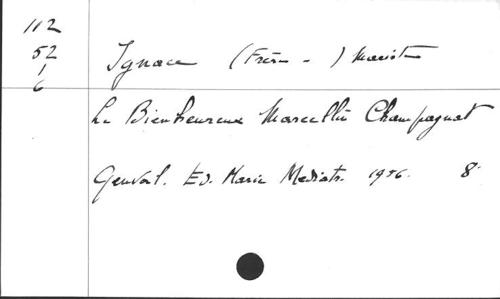 112
52
1
6
Ignace (Frère - ) Mariste
Le Bienheureux Marcellin Champagnat
Genval. Ed. Marie Mediatr. 1956. 8°